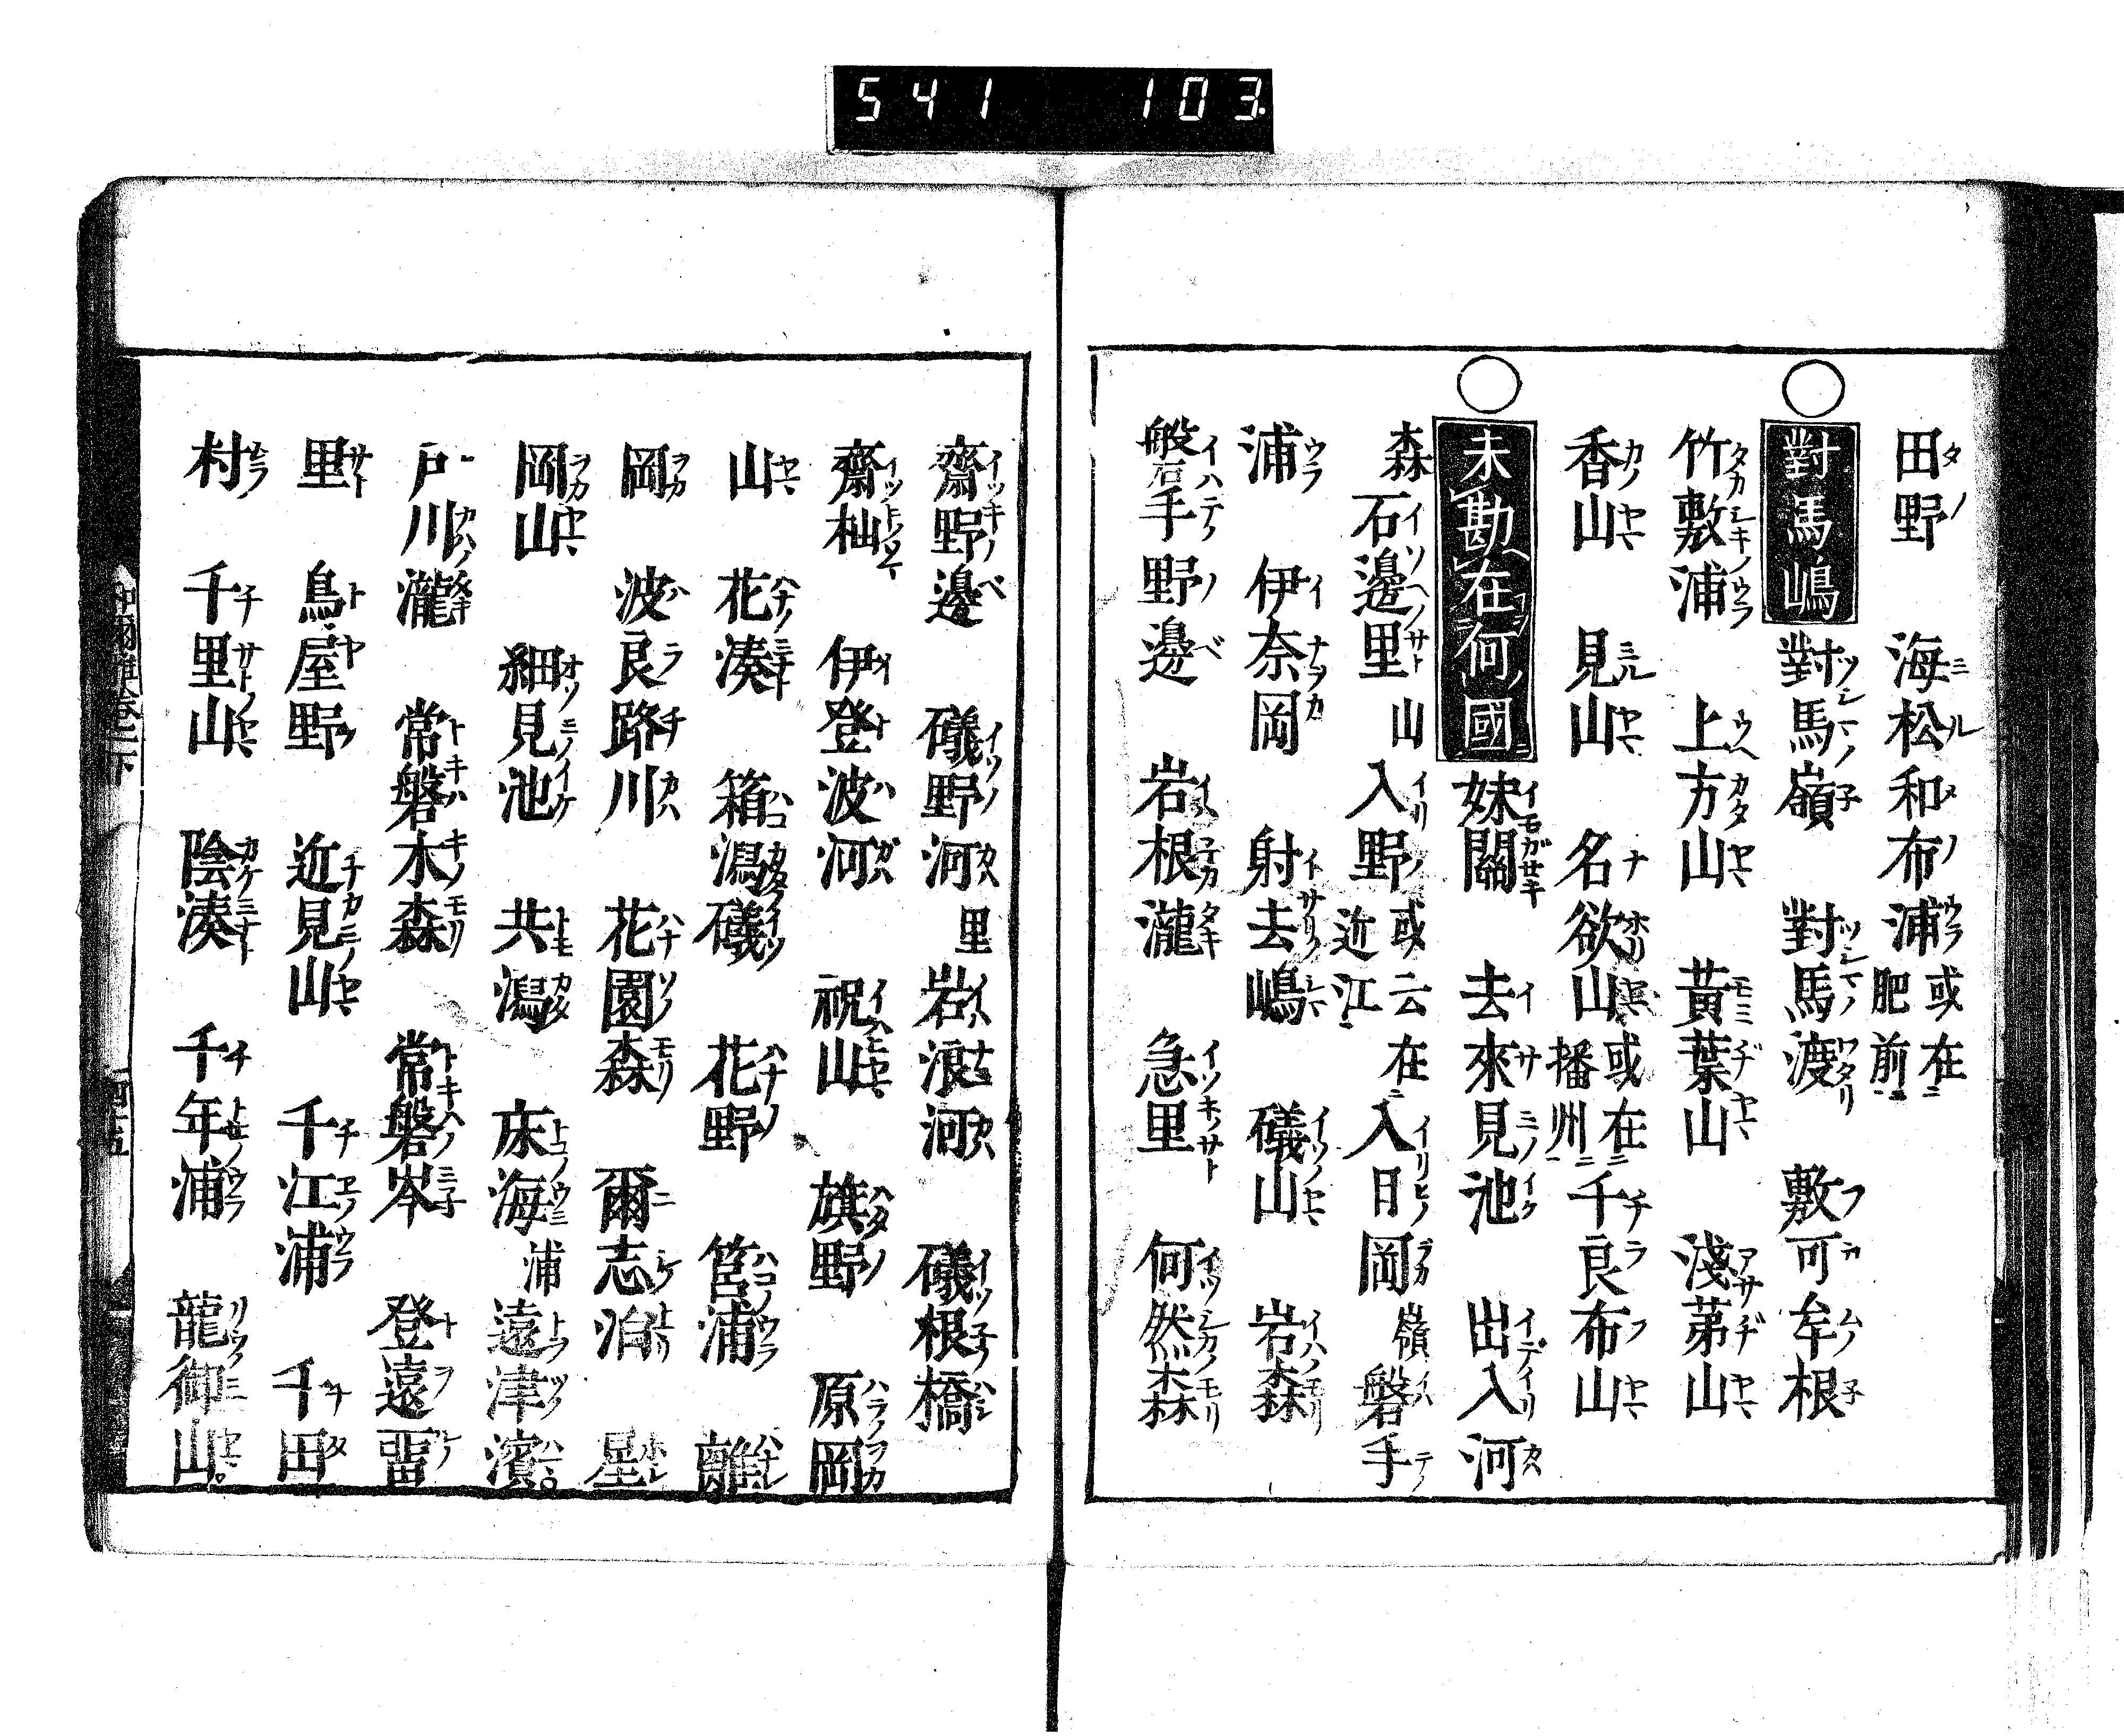 541 103
田野 海松和布浦 或在肥前
○對馬嶋 對馬嶺 對馬渡 敷可牟根
竹敷浦 上方山 黃葉山 淺茅山
香山 見山 名欲山 或在播州 千良布山
○未勘在何國 妹關 去來見池 出入河
森 石邊里 山 入野 或云在近江 入日岡 嶺 磐手
浦 伊奈岡 射去嶋 礒山 岩森
磐手野邊 岩根瀧 急里 何然森
齋野邊 礒野河 里 岩浪河 礒根橋
齋杣 伊登波河 祝山 旗野 原岡
山 花湊 箱潟礒 花野 筥浦 離
岡 波良路川 花園森 爾志泊 星
岡山 細見池 共潟 床海 浦 遠津濱
戸川瀧 常磐木森 常磐岑 登遠畱
里 鳥屋野 近見山 千江浦 千田
村 千里山 陰湊 千年浦 龍御山